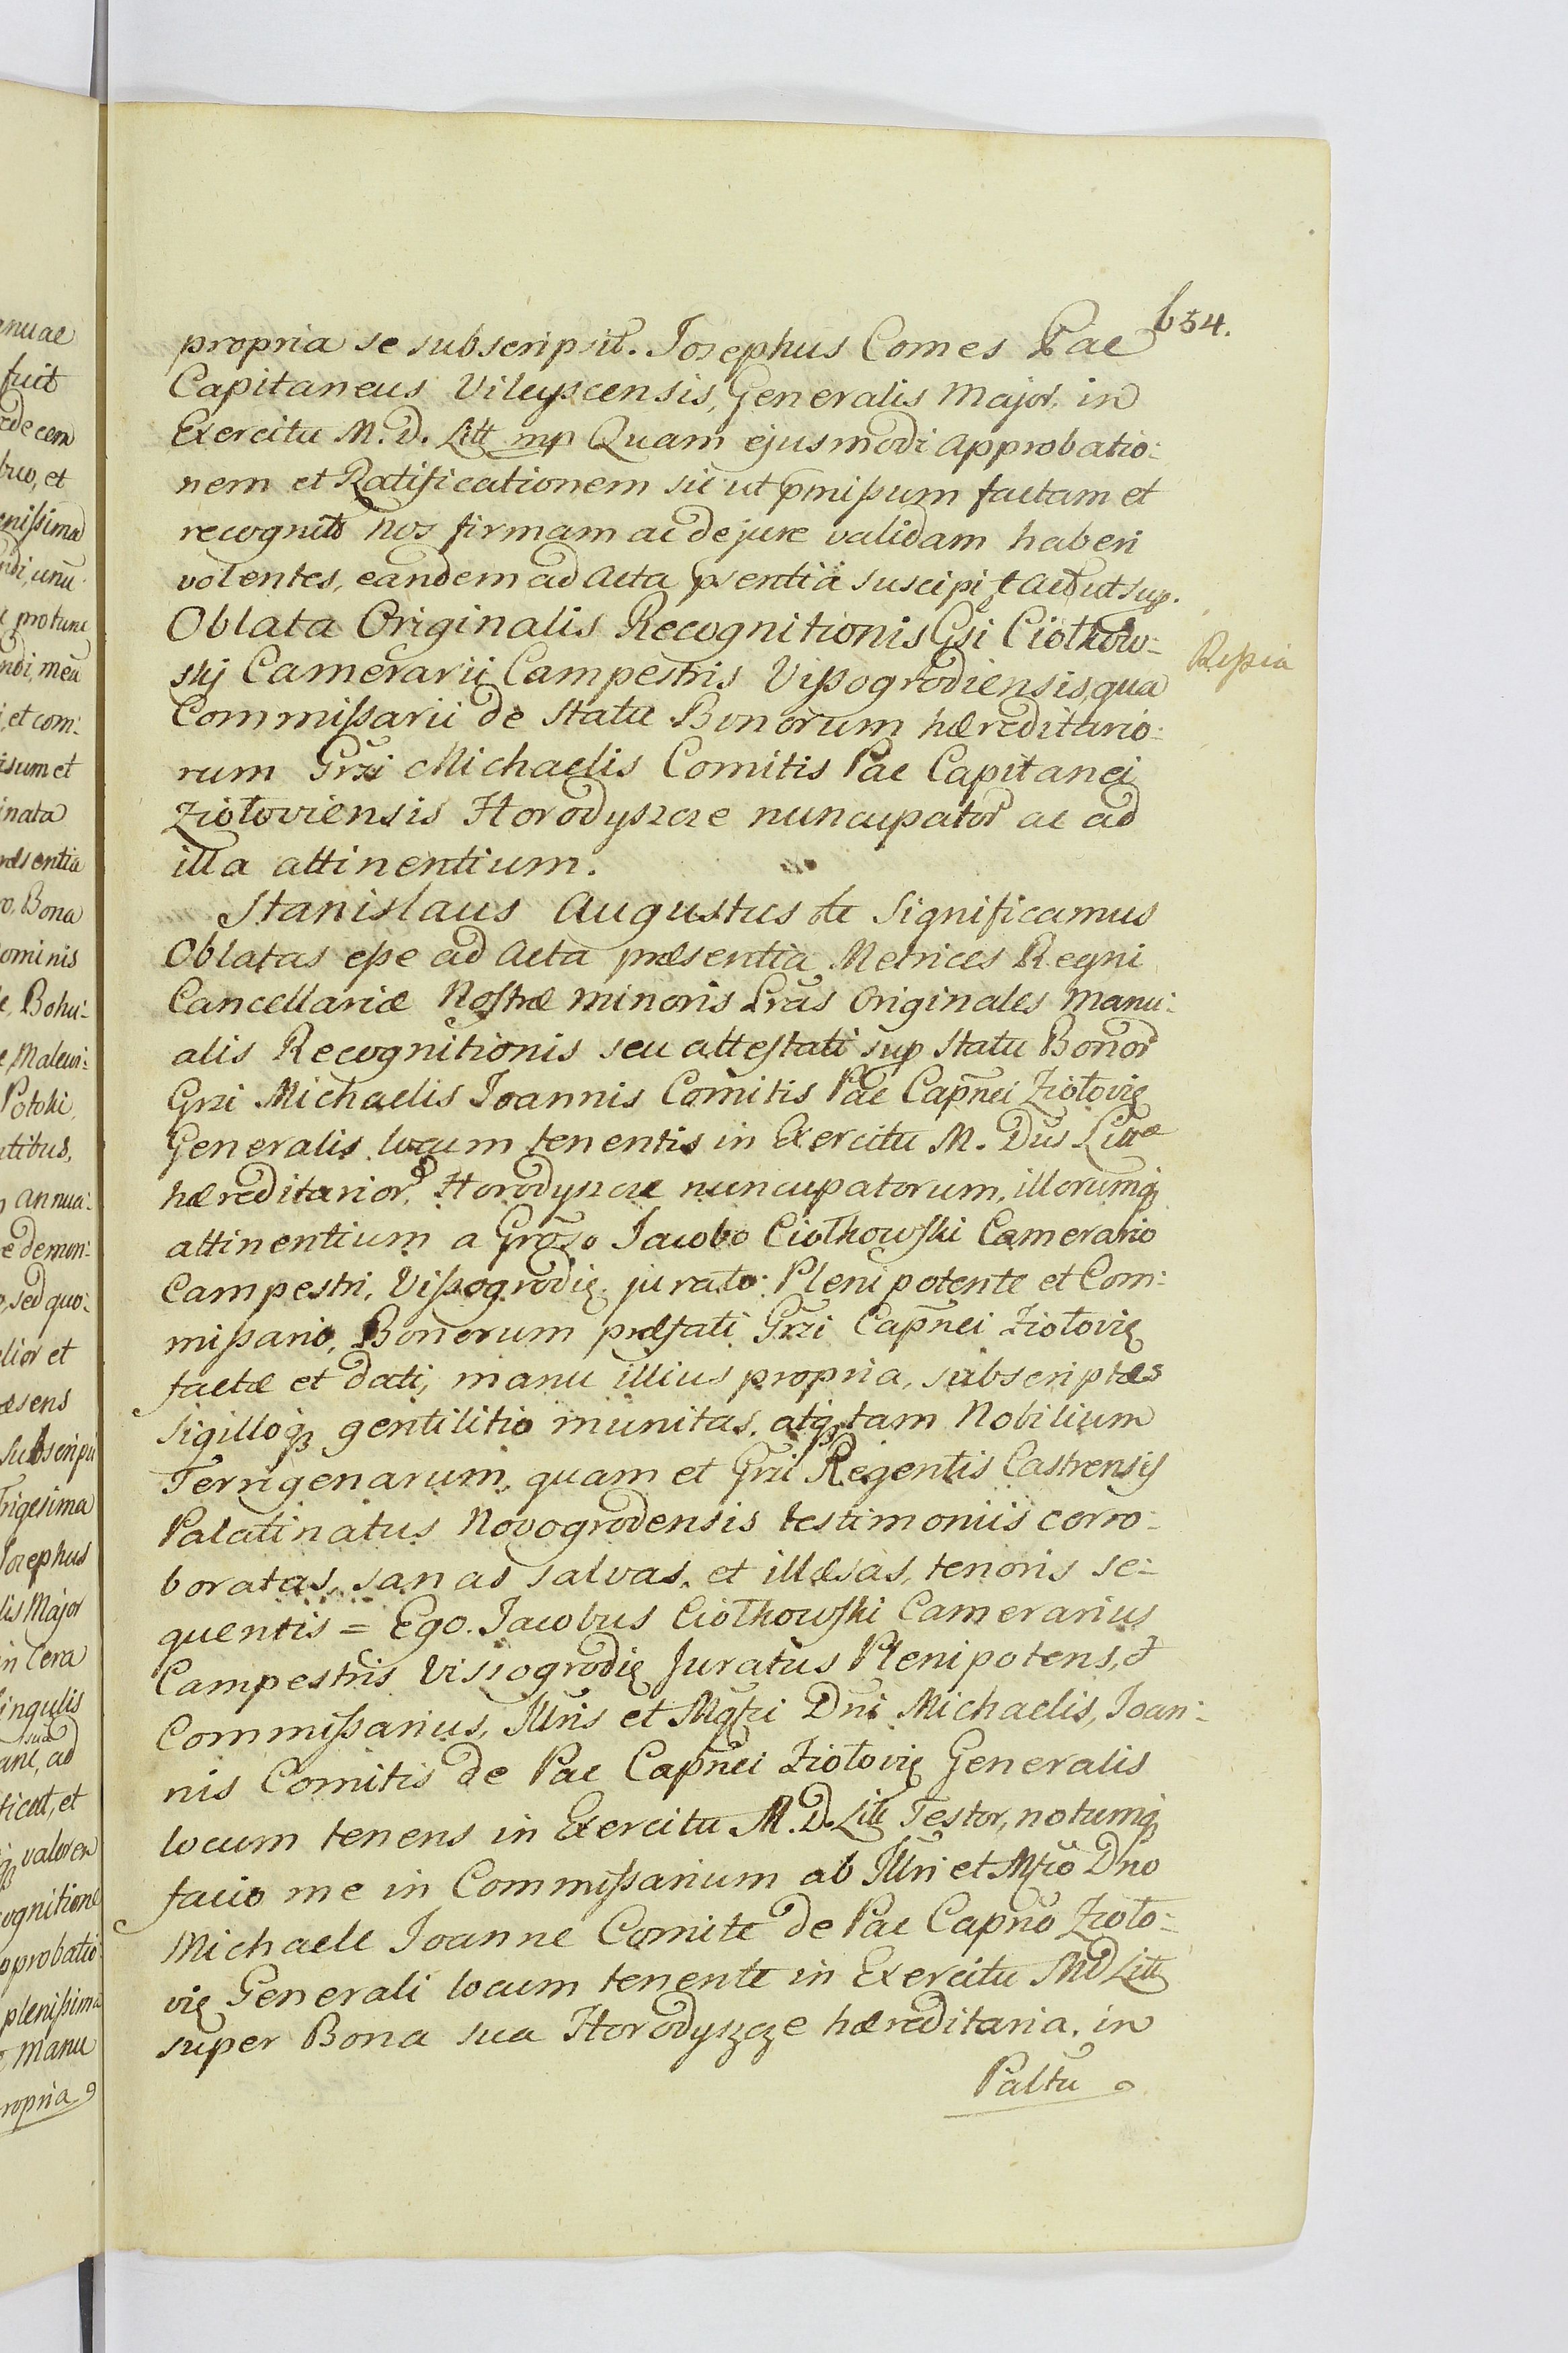 634.
propria se subscripsit. Josephus Comes Pac
Capitaneus Vileyscensis, Generalis Major, in
Exercitu M. D. Litt mp Quam ejusmodi approbatio:
nem et Ratificationem sic ut pmißum factam et
recognit nos firmam ac de jure validam haberi
volentes, eandem ad Acta psentia suscipi Act ut sup.
Oblata Originalis Recognitionis Gsi Ciołkow-
skj Camerarii Campestris Vißogrodiensis, qua
Commißarii de Statu Bonorum hæredittario:
rum Grzi Michaelis Comitis Pac Capitanei
Ziołoviensis Horodyszcze nuncupator ac ad
illa attinentium.
Respcia
Stanislaus Augustus etc Significamus
Oblatas eße ad Acta præsentia Metrices Regni
Cancellariæ Nostræ minoris Lras Originales manu:
alis Recognitionis seu attestati sup Statu Bonor
Grzi Michaelis Joannis Comitis Pac Capnei Ziołovię
Generalis locum tenentis in Exercitu M. Dus Littæ
hæreditarior, Horodyszcze nuncupatorum, illorumq
attinentium a Groso Jacobo Ciołkowski Camerario
Campestri, Vißogrodię. jurato: Plenipotente et Com:
mißario, Bonorum præfati Grzi Capnei Ziołovię
factæ et dati, manu illius propria, subscriptas
Sigilloq gentilitio munitas, atq tam Nobilium
Terrigenarum, quam et Grzi Regentis Castrensis
Palatinatus Novogrodensis testimoniis corro-
boratas, sanas salvas, et illæsas, tenoris se-
quentis = Ego. Jacobus Ciołkowski Camerarius
Campestris Viszogrodię Juratus Plenipotens, et
Commißarius, Illris et Mgfci Dni Michaelis, Joan:
nis Comitis de Pac Capnei Ziołovię Generalis
locum tenens in Exercitu M. D. Litt Testor, notumq
facio me in Commißarium ab Illri et Mfco Dno
Michaele Joanne Comite de Pac Capno Zioło-
vię Generali locum tenente in Exercitu MD Litt
super Bona sua Horodyszcze hæreditaria, in
Paltu